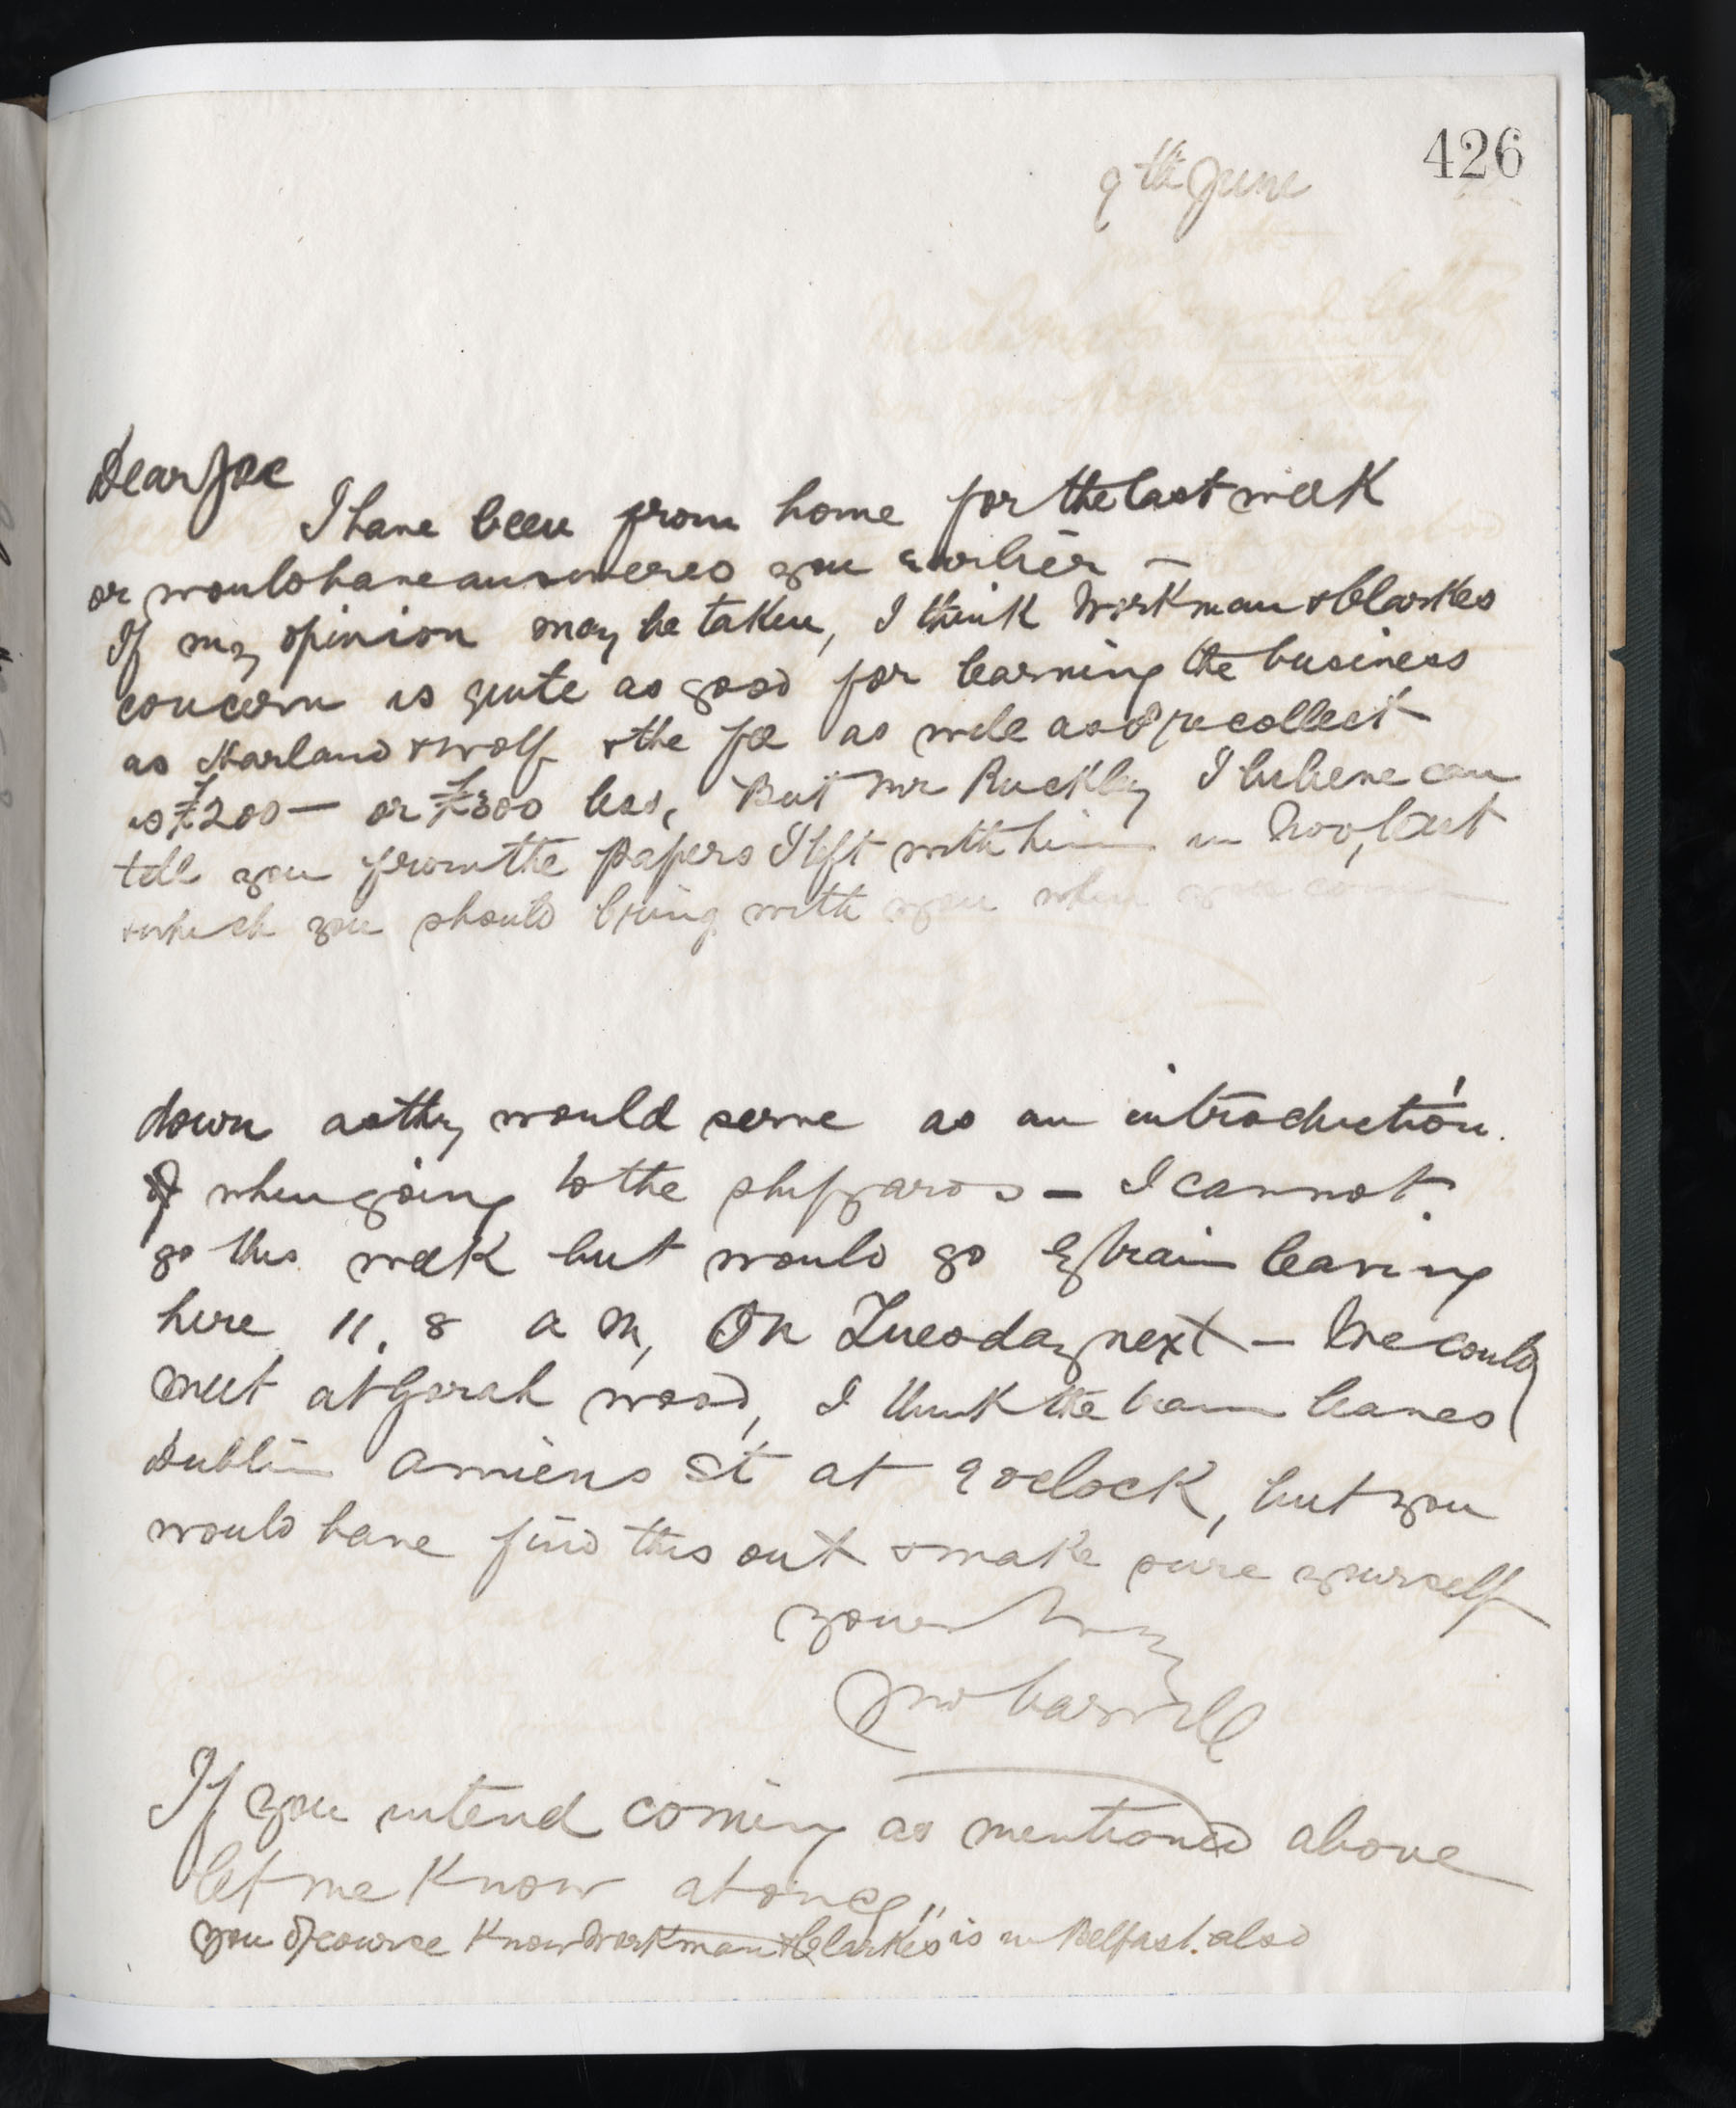 426
9th June
Dear Joe
I have been from home for the last week
or would have answered you earlier —
If my opinion may be taken, I think Workman & Clarkes
concern is quite as good for learning the business
as Harland & Wolf & the fee as well as I recollect
is £200 — or £300 less, But Mr Buckley I believe can
tell you from the papers I left with him in Nov, last
& which you should bring with you when you come
down as they would serve as an introduction.
when going to the shipyards — I cannot
go this week but would go by train leaving
here 11.8 a m, On Tuesday next — We could
meet at Gorah wood, I think the train leaves
Dublin Amiens St at 9 oclock, but you
would have find this out & make sure yourself
yours truly
Jno Carvill
If you intend coming as mentioned above
let me know at once,
you of course know Workman & Clarkes is in Belfast also